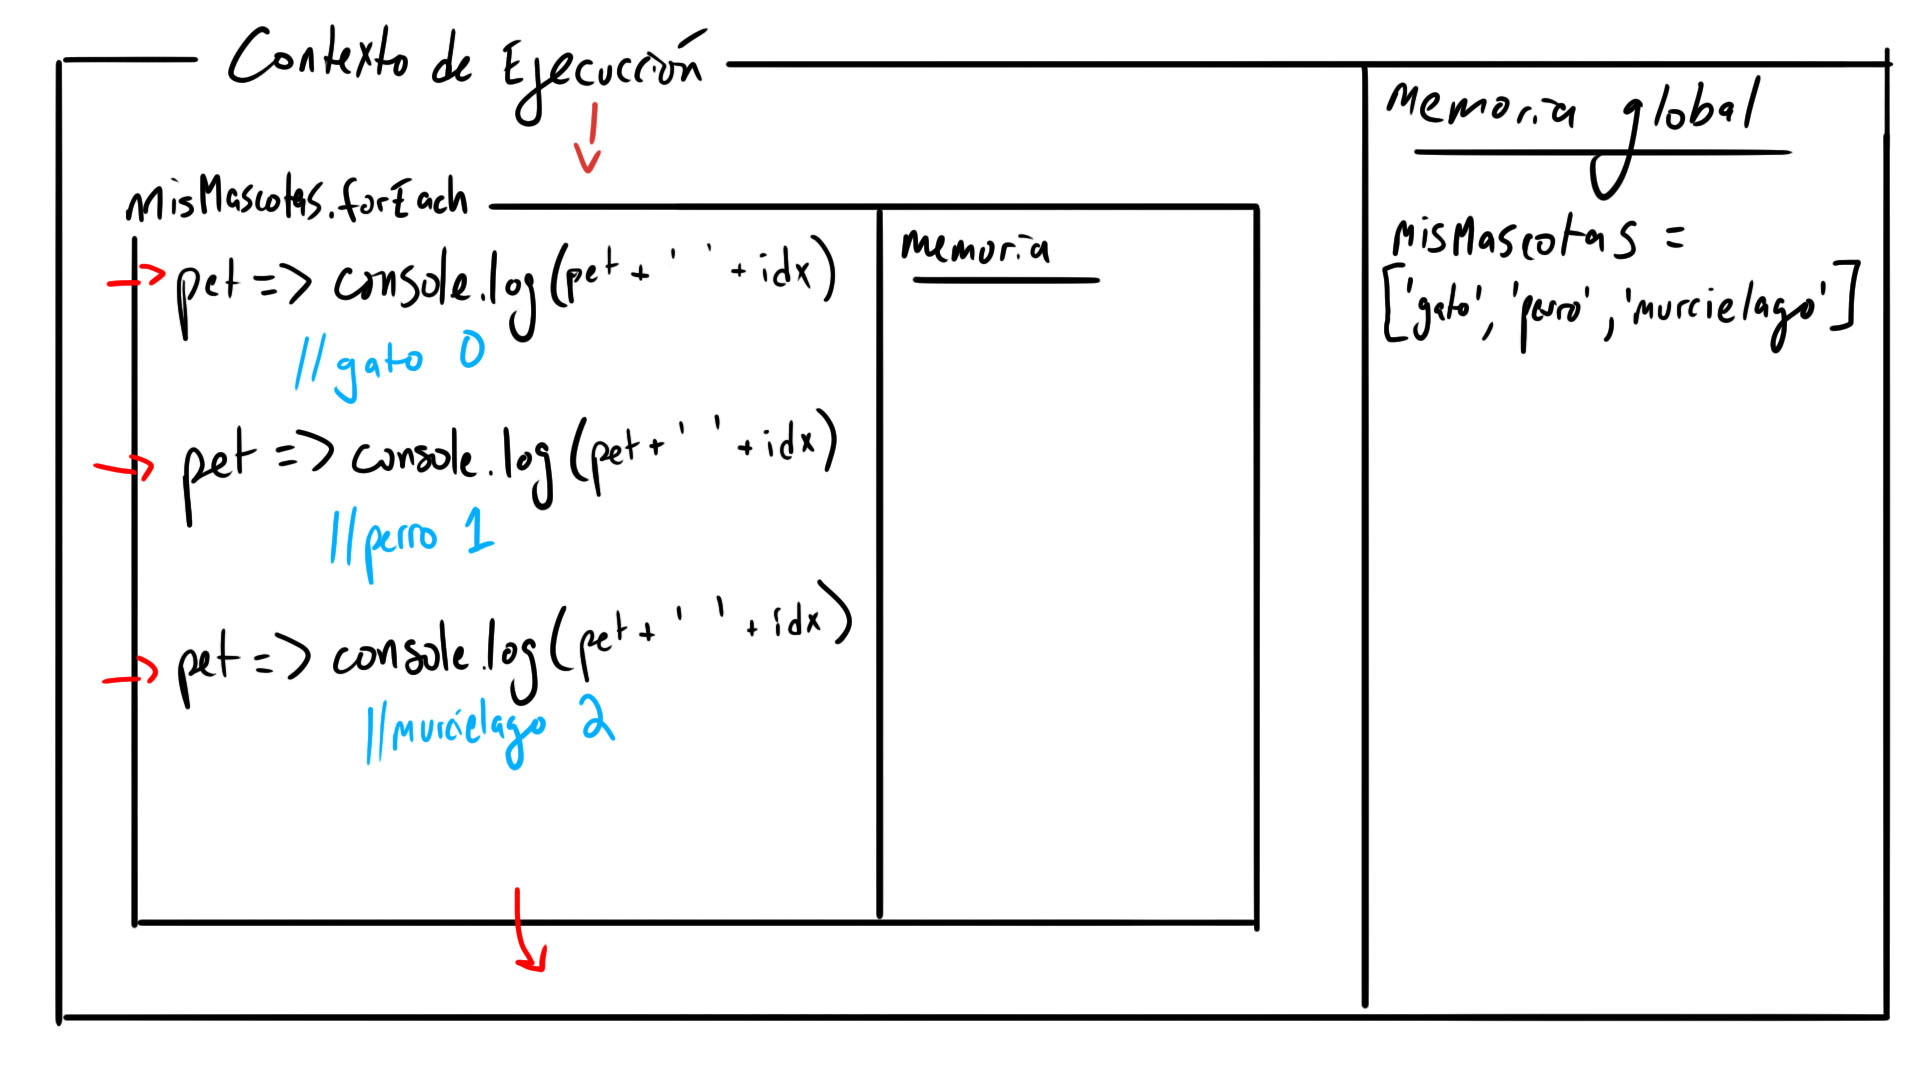 Contexto de Ejecucción
misMascotas.forEach
pet => console.log(pet + ' ' + idx)
//gato 0
pet => console.log(pet + ' ' + idx)
//perro 1
pet => console.log(pet + ' ' + idx)
//murcielago 2
memoria
memoria global
misMascotas =
['gato', 'perro', 'murcielago']